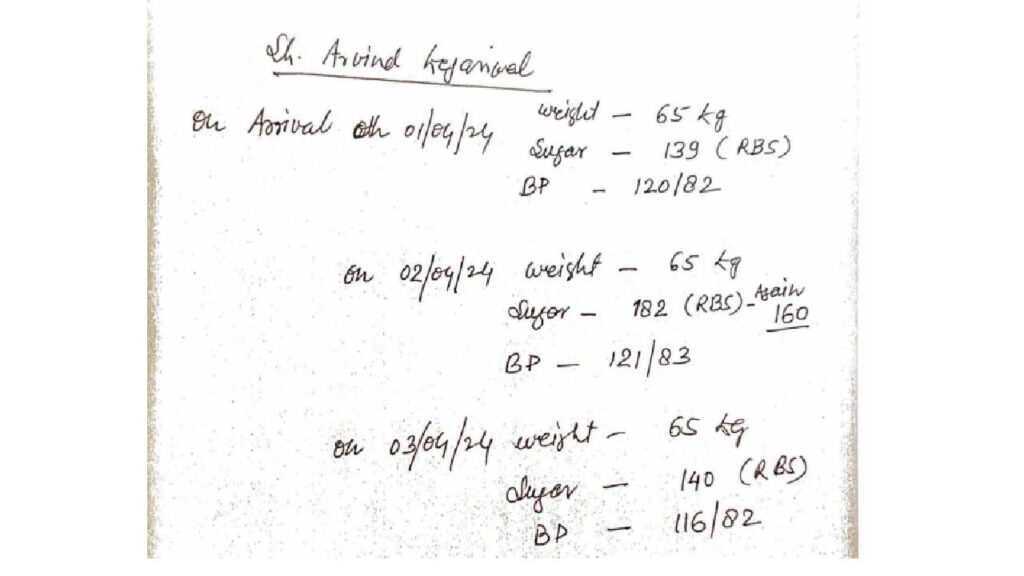 Sh. Arvind Kejariwal
On Arrival on 01/04/24 weight – 65 kg
Sugar – 139 (RBS)
BP – 120/82
on 02/04/24 weight – 65 kg
Sugar – 182 (RBS) - Again 160
BP – 121/83
on 03/04/24 weight – 65 kg
Sugar – 140 (RBS)
BP – 116/82